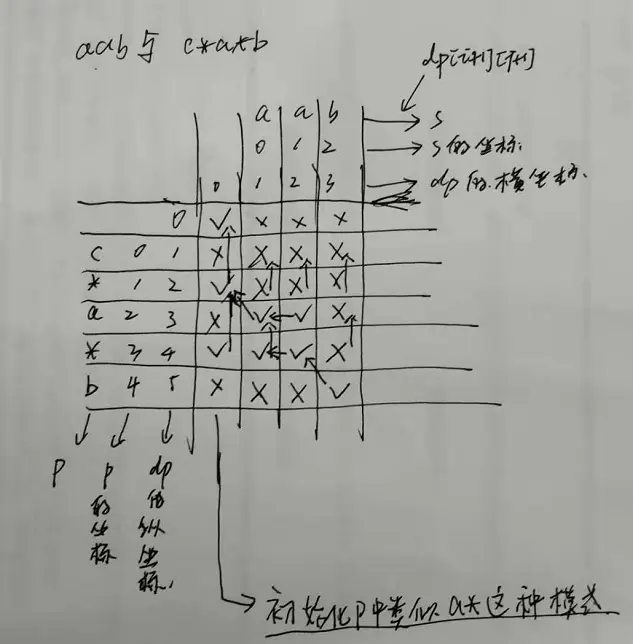 aab与 c*a*b
dp[i+1][j+1]
a a b → s
0 1 2 → s的坐标.
0 1 2 3 → dp的横坐标.
0 ✓ × × ×
c 0 1 × × × ×
* 1 2 ✓ × × ×
a 2 3 × ✓ ✓ ×
* 3 4 ✓ ✓ ✓ ×
b 4 5 × × × ✓
p
p的坐标
dp的纵坐标.
初始化p中类似a*这种模式